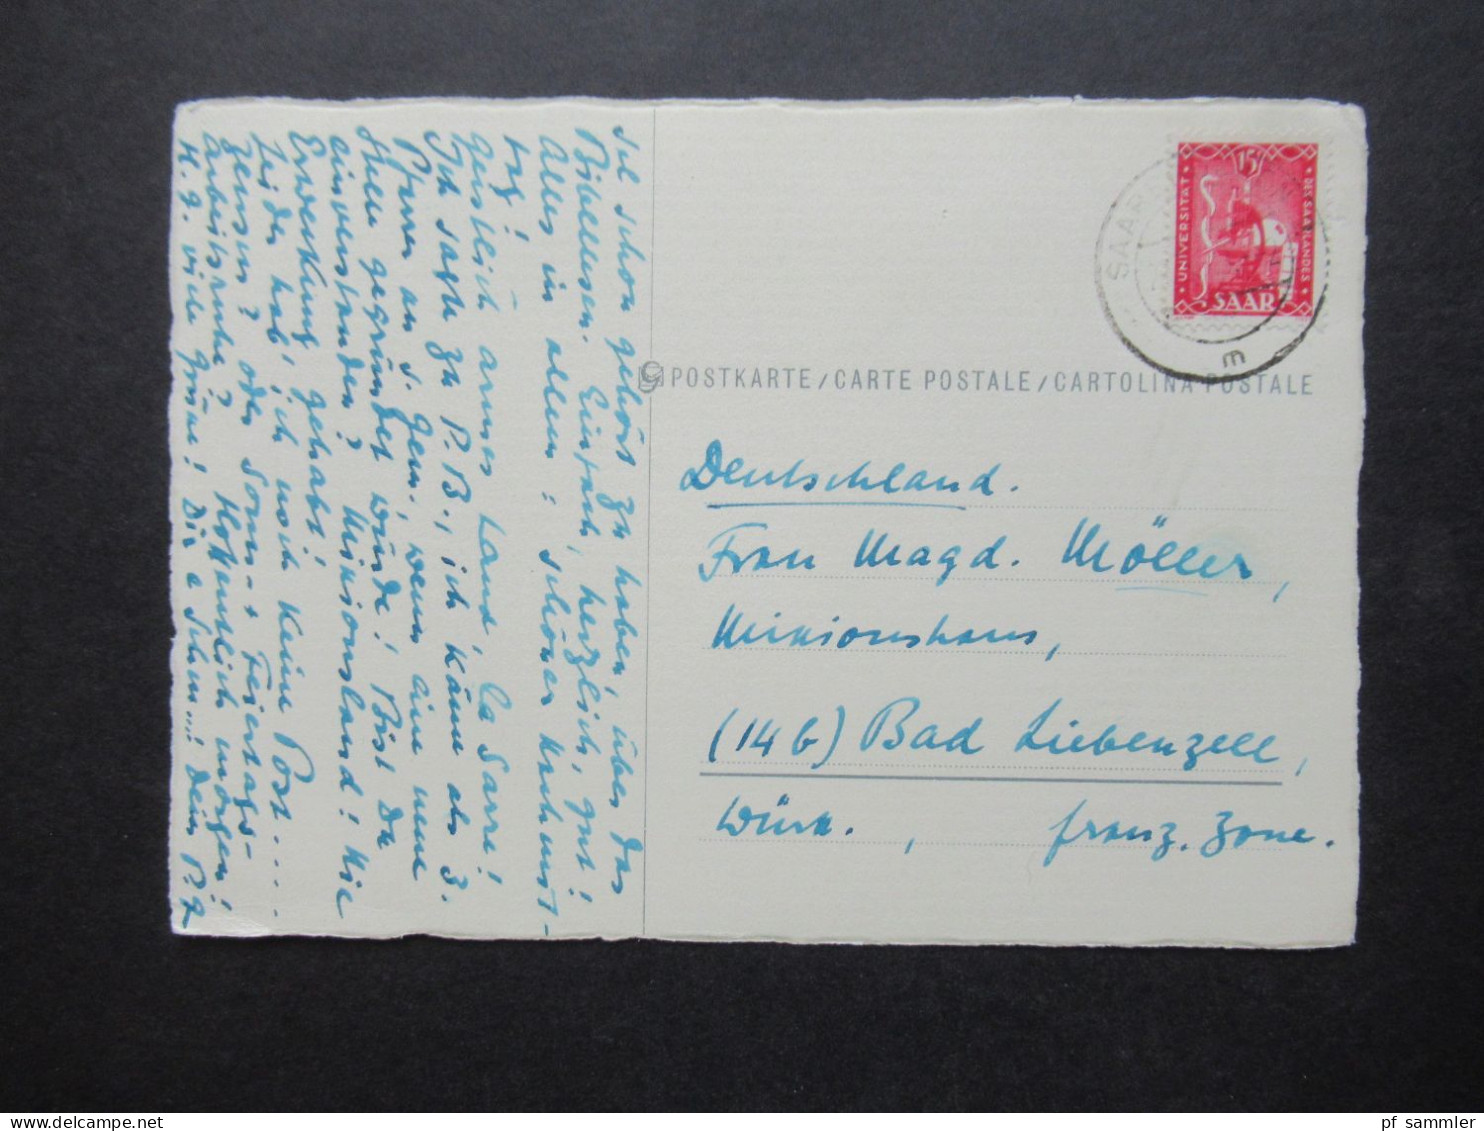 ich schon gehört zu haben, über das
Bibellesen. Einfach, herzlich, gut!
Alles in allem: schöner Konfirst-
tag!
Geistlich armes Land, la Sarre!
Ich sagte zu P. B., ich käme als 3.
Pfarrer an s. Gem., wenn eine neue
Stelle gegründet würde! Bist Du
einverstanden? Missionsland! Nie
Erweckung gehabt!
Leider hab' ich noch keine Post.....
Gensur? oder Sonn- + Feiertags-
arbeitsruhe? Hoffentlich morgen!
H. g. viele Grüsse! Die e schm...! Dein P. G
15
UNIVERSITÄT
DES SAARLANDES
SAAR
SAAR
POSTKARTE / CARTE POSTALE / CARTOLINA POSTALE
Deutschland.
Frau Magd. Möller,
Missionshaus,
(14b) Bad Liebenzell,
Württ., franz. Zone.
pf_sammler